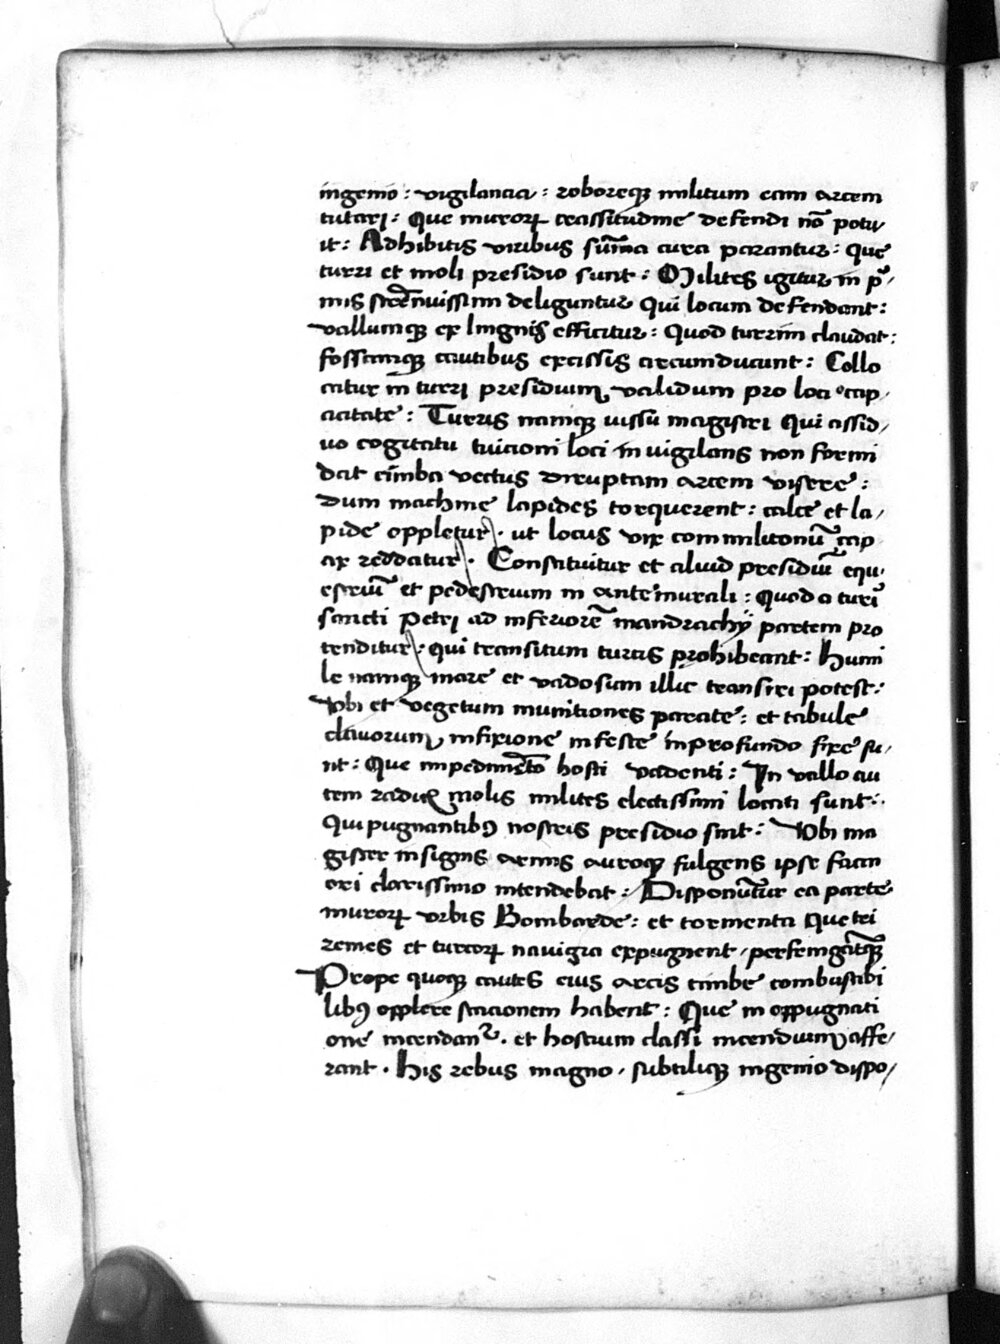 ingenio : vigilancia : roboreqꝫ militum eam arcem
tutari : Que murorꝝ crassitudine defendi nō potu
it : Adhibitis viribus sūma cura parantur : que
turri et moli presidio sunt : Milites igitur in p̄⸗
mis strēnuissimi deliguntur qui locum defendant :
vallumqꝫ ex lingnis efficitur : quod turrim claudat :
fossamqꝫ cautibus excissis circumducunt : Collo
catur in turri presidium validum pro loci cap⸗
acitate : Turris namqꝫ vissū magistri qui assid⸗
uo cogitatu tuicioni loci in vigilans non formi
dat cimba vectus diruptam arcem visere :
dum machine lapides torquerent : calce et la⸗
pide oppletur . ut locus vix commilitonū cap
ax reddatur . Constituitur et aliud presidiū equ⸗
estriū et pedestrium in antemurali : quod a turri
sancti Petri ad inferiorē mandrachÿ partem pro
tenditur : qui transitum turcis prohibeant : humi
le namqꝫ mare et vadosum illic transiri potest :
Vbi et vegetum munitiones parate : et tabule
clavorum infixione infeste in profundo fixe su⸗
nt : Que impedimēto hosti vadenti : In vallo au
tem radicꝭ molis milites electissimi locati sunt :
Qui pugnantibꝰ nostris presidio sint : Vbi ma
gister insignis armis auroqꝫ fulgens ipse facin
ori clarissimo intendebat : Disponūtur ea parte
murorꝝ vrbis Bombarde : et tormenta que tri
remes et turcorꝝ navigia expugnent / perfringātqꝫ
Prope quoqꝫ cautes eius arcis cimbe combustibi
libꝰ opplete stacionem habent : Que in oppugnati
one incendanᷣ . et hostium classi incendium affe⸗
rant . his rebus magno / subtiliqꝫ ingenio dispo⸗